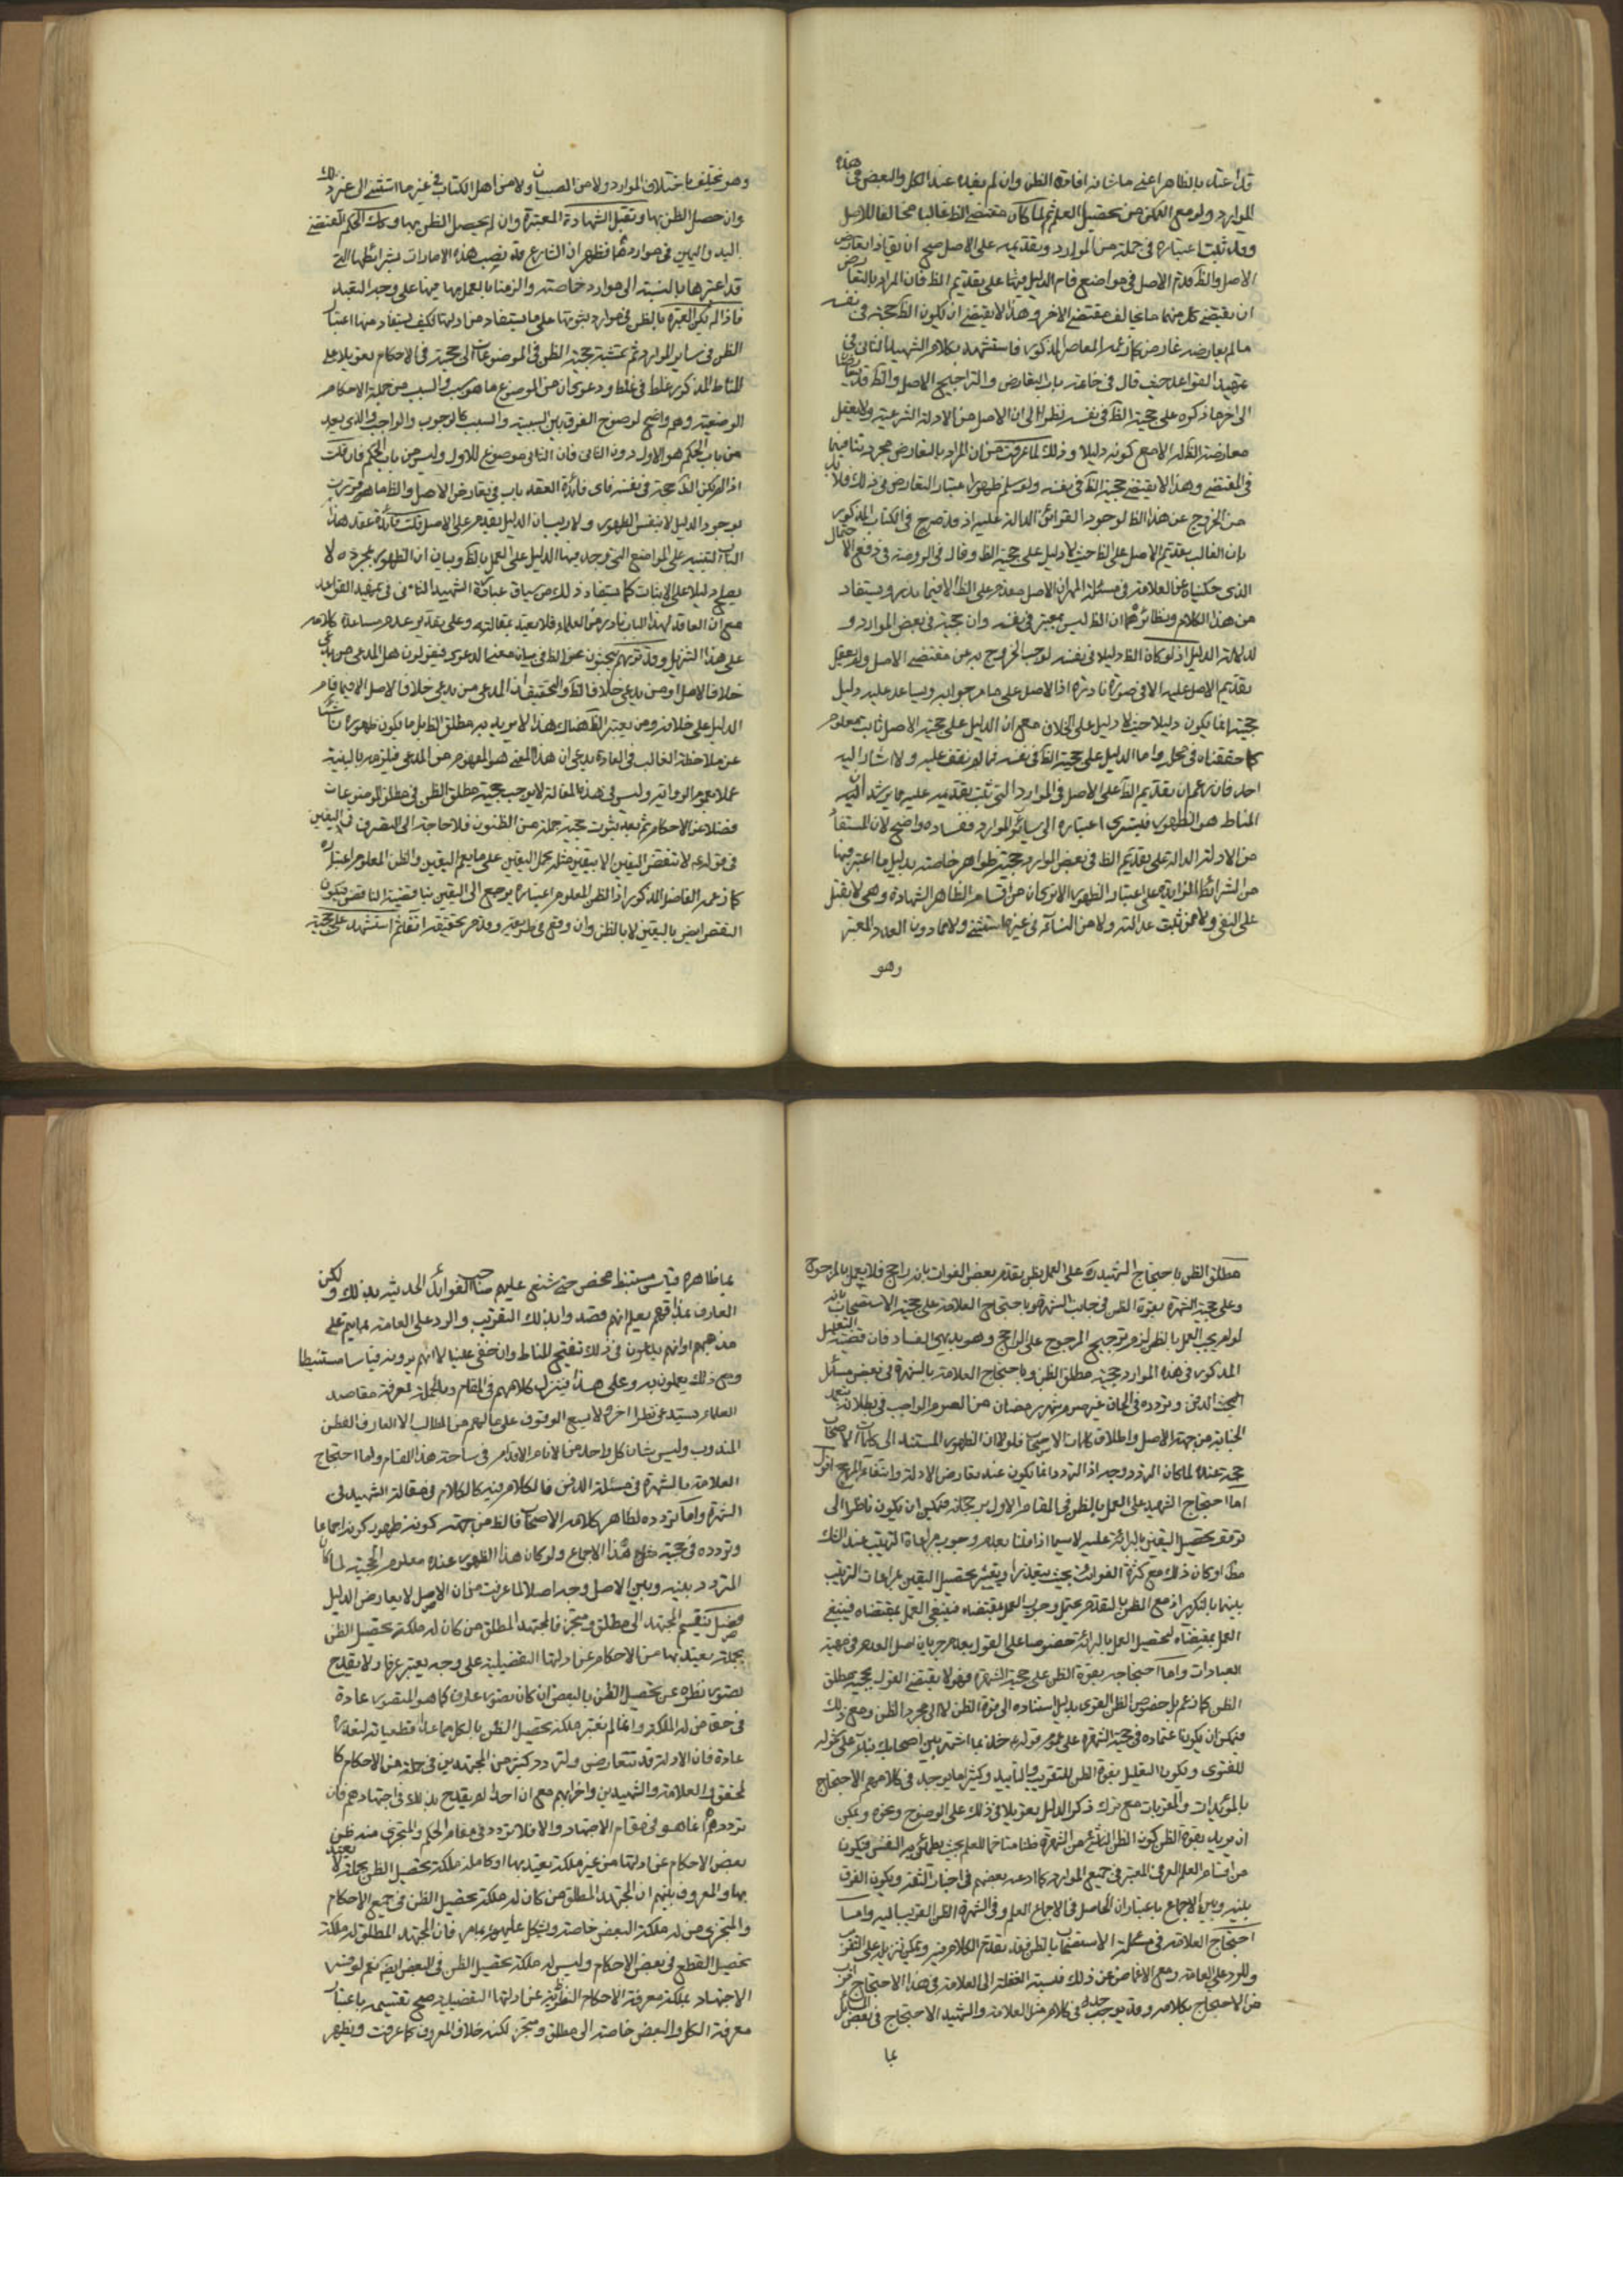 قد اعتبر بالظاهر اعنى ما شانه افادة الظن وان لم يفده عند الكل والبعض فى هذه
الموارد ولو مع التمكن من تحصيل العلم ثم لما كان مقتضى الظ غالبا مخالفا للاصل
وقد ثبت اعتباره فى جملة من الموارد وتقديمه على الاصل صح ان يقال اذا تعارض
الاصل والظ قدم الاصل الا فى مواضع قام الدليل فيها على تقديم الظ فان المراد بالتعارض
ان يقتضى كل منهما ما يخالف مقتضى الاخر وهذا لا يقتضى ان يكون الظ حجة فى نفسه
ما لم يعارضه معارض كما زعمه المعاصر المذكور فاستشهد بكلام الشهيد الثانى فى
تمهيد القواعد حيث قال فى خاتمة باب التعارض والتراجيح الاصل والظ قد يتعارضا
الى اخر ما ذكره على حجية الظ فى نفسه نظرا الى ان الاصل من الادلة الشرعية ولا يعقل
معارضة الظ له الا مع كونه دليلا وذلك لما عرفت من ان المراد بالتعارض مجرد تنافيهما
فى المقتضى وهذا لا يقتضى حجية الظ فى نفسه ولو سلم ظهور اعتبار التعارض فى ذلك فلا بد
من الخروج عن هذا الظ لوجود القرائن الدالة عليه اذ قد صرح فى الكتاب المذكور
بان الغالب تقديم الاصل على الظ حيث لا دليل على حجية الظ وقال فى الروضة فى دفع الاحتمال
الذى حكيناه عن العلامة فى مسئلة المهر ان الاصل مقدم على الظ الا فيما ندر ويستفاد
من هذا الكلام ونظائره ان الظ ليس بمعتبر فى نفسه وان حجيته فى بعض الموارد
لدلالة الدليل اذ لو كان الظ دليلا فى نفسه لوجب الخروج به عن مقتضى الاصل ولم يعقل
تقديم الاصل عليه الا فى صورة نادرة اذ الاصل على ما مر جوابه ويساعد عليه دليل
حجيته انما يكون دليلا حيث لا دليل على الخلاف مع ان الدليل على حجية الاصل ثابت معلوم
كما حققناه فى محله واما الدليل على حجية الظ فى نفسه فما لم نقف عليه ولا اشار اليه
احد فان زعم ان تقديم الظ على الاصل فى الموارد التى ثبت تقديمه عليه مما يرشد الى ان
المناط هو الظهور فيسرى اعتباره الى سائر الموارد ففساده واضح لان المستفاد
من الادلة الدالة على تقديم الظ فى بعض الموارد حجية ظواهر خاصة بدليل ما اعتبر فيها
من الشرائط الزايدة على اعتبار الظهور الا ترى ان من اقسام الظاهر الشهادة وهى لا تقبل
على النفى ولا ممن ثبت عدالته ولا من النساء فى غير ما استثنى ولا مما دون العدد المعتبر
وهو
وهو يختلف باختلاف الموارد ولا من الصبيان ولا من اهل الكتاب فى غير ما استثنى الى غير ذلك
وان حصل الظن بها وتقبل الشهادة المعتبرة وان لم يحصل الظن بها وكذلك الحكم بمقتضى
اليد واليمين فى مواردهما فظهر ان الشارع قد نصب هذه الامارات بشرائطها التى
قد اعتبرها بالنسبة الى موارد خاصة والزمنا بالعمل بها فيها على وجه التعبد
فاذا لم يكن العبرة بالظن فى موارد ثبوتها على ما يستفاد من ادلتها فكيف يستفاد منها اعتبار
الظن فى ساير الموارد ثم تمشية حجية الظن فى الموضوعات الى حجيته فى الاحكام تعويلا على
المناط المذكور غلط فى غلط ودعوى ان من الموضوع ما هو سبب والسبب من جملة الاحكام
الوضعية وهم واضح لوضوح الفرق بين السببية والسبب كالوجوب والواجب والذى يعد
من باب الحكم هو الاول دون الثانى فان الثانى موضوع للاول وليس من باب الحكم فان قلت
اذا لم يكن الظ حجة فى نفسه فاى فائدة لعقد باب فى تعارض الاصل والظ
بوجود الدليل لا بنفس الظهور ولا ريب ان الدليل يقدم على الاصل قلت فائدة عقد هذا
الباب التنبيه على المواضع التى وجد فيها الدليل على العمل بالظ وبيان ان الظهور بمجرده لا
يصلح دليلا على الاثبات كما يستفاد ذلك من سياق عبارة الشهيد الثانى فى تمهيد القواعد
مع ان العاقد لهذا الباب نادر من العلماء فلا يعتد بمقالته وعلى تقدير عدم مساعدة كلامه
على هذا التنزيل وقد تريهم يبحثون عن الظ فى بيان معنى الدعوى فيقولون هل المدعى من يدعى
خلاف الاصل او من يدعى خلاف الظ والتحقيق ان المدعى من يدعى خلاف الاصل الا فيما قام
الدليل على خلافه ومن يعتبر الظ هناك هذا الا يريد به مطلق الظ بل ما يكون ظهوره ناشئا
عن ملاحظة الغالب فى العادة يدعى ان هذا المعنى هو المفهوم من المدعى فيلزمه بالبينة
عملا بعموم الرواية وليس فى هذه المقالة ما يوجب حجية مطلق الظن فى مطلق الموضوعات
فضلا عن الاحكام ثم بعد ثبوت حجية جملة من الظنون فلا حاجة الى التصرف فى اليقين
فى قوله ع لا تنقض اليقين الا بيقين مثله بحمل اليقين على ما يعم اليقين والظن المعلوم اعتباره
كما زعمه الفاضل المذكور اذ الظن المعلوم اعتباره يرجع الى اليقين بنا فيكون
النقض ايض باليقين لا بالظن وان وقع فى طريقه وقد مر تحقيقه انفا ثم استشهد على حجية
مطلق الظن باحتجاج الشهيد ره على العمل بظن تقدم بعض الفوائت بانه راجح فلا يعمل بالمرجوح
وعلى حجية الشهرة بقوة الظن فى جانب الشهرة وباحتجاج العلامة على حجية الاستصحاب بانه
لو لم يجب العمل بالظن لزم ترجيح المرجوح على الراجح وهو بديهى الفساد فان قضية التعليل
المذكور فى هذه الموارد حجية مطلق الظن وباحتجاج العلامة بالشهرة فى بعض مسائل
مبحث الدفن وتردده فى الحاق غير صوم شهر رمضان من الصوم الواجب فى بطلانه بتعمد
الجنابة من جهة الاصل واطلاق كلمات الاصحاب فلولا ان الظهور المستند الى كلمات الاصحاب
حجة عنده لما كان للتردد وجه اذ التردد انما يكون عند تعارض الادلة وانتفاء المرجح اقول
اما احتجاج الشهيد على العمل بالظن فى المقام الاول برجحانه فيمكن ان يكون ناظرا الى
توقف تحصيل اليقين بالبرائة عليه لا سيما اذا قلنا بعدم وجوب مراعاة الترتيب عند الشك
مط او كان ذلك مع كثرة الفوائت بحيث يتعذر او يتعسر تحصيل اليقين بمراعات الترتيب
بينها بالتكرير اذ مع الظن بالتقدم يحتمل وجوب العمل بمقتضاه فينبغى العمل بمقتضاه فينبغى
العمل بمقتضاه لتحصيل العلم بالبرائة خصوصا على القول بعدم جريان اصل العدم فى مهية
العبادات واما احتجاجه بقوة الظن على حجية الشهرة فهو لا يقتضى القول بحجية مطلق
الظن كما زعم بل خصوص الظن القوى بدليل استناده الى قوة الظن لا الى مجرد الظن ومع ذلك
فيمكن ان يكون اعتماده فى حجية الشهرة على عموم قوله ع خذ بما اشتهر بين اصحابك بناء على شموله
للفتوى ويكون التعليل بقوة الظن للتقريب والتأييد وكثيرا ما يوجد فى كلامهم الاحتجاج
بالمؤيدات والمقربات مع ترك ذكر الدليل تعويلا فى ذلك على الوضوح ونحوه ويمكن
ان يريد بقوة الظن كون الظن الناشى من الشهرة ظنا متاخما للعلم بحيث يطمئن به النفس فيكون
من اقسام العلم العرفى المعتبر فى جميع الموارد كما ادعى بعضهم فى اخبار الثقة ويكون الفرق
بينه وبين الاجماع باعتبار ان الحاصل فى الاجماع العلم وفى الشهرة الظن القريب اليه واما
احتجاج العلامة فى مسئلة الاستصحاب بالظن فقد تقدم الكلام فيه ويمكن تنزيله على التقريب
وللرد على العامة ومع الاغماض عن ذلك فنسبة الغفلة الى العلامة فى هذا الاحتجاج اقرب
من الاحتجاج بكلامه وقد يوجد فى كلام مثل العلامة والشهيد الاحتجاج فى بعض المسائل
بما
بما ظاهره قياس مستنبط محض حتى شنع عليهم صاحب الفوائد الحديثية بذلك ولكن
العارف بمذاقهم يعلم انهم قصدوا بذلك التقريب والرد على العامة بما يتم على
مذهبهم او انهم يدعون فى ذلك تنقيح المناط وان خفى علينا لا انهم يرونه قياسا مستنبطا
ومع ذلك يعملون به وعلى هذا فينزل كلامهم فى المقام وبالجملة فمعرفة مقاصد
العلماء يستدعى نظرا اخر ولا يسع الوقوف على ما لهم من المطالب الا العارف الفطن
المندوب وليس شان كل واحد من الانام الاقدام فى ساحة هذا المقام واما احتجاج
العلامة بالشهرة فى مسئلة الدفن فالكلام فيه كالكلام فى مقالة الشهيد فى
الشهرة واما تردده لظاهر كلام الاصحاب فالظ من جهة كونه ظهور كونه اجماعا
وتردده فى حجية مثل هذا الاجماع ولو كان هذا الظهور عنده معلوم الحجية لما كان
للتردد بينه وبين الاصل وجه اصلا لما عرفت من ان الاصل لا يعارض الدليل
فصل ينقسم المجتهد الى مطلق ومتجز فالمجتهد المطلق من كان له ملكة تحصيل الظن
بجملة يعتد بها من الاحكام عن ادلتها التفصيلية على وجه يعتبر عرفا ولا يقدح
قصور نظره عن تحصيل الظن بالبعض ان كان قصور علوم كما هو المقصور عادة
فى حق من له الملكة وانما لم نعتبر ملكة تحصيل الظن بالكل مما عدا قطعياته لتعذره
عادة فان الادلة قد تتعارض ولتردد كثير من المجتهدين فى جملة من الاحكام كا
لمحقق والعلامة والشهيدين واضرابهم مع ان احدا لم يقدح بذلك فى اجتهادهم فان
ترددهم انما هو فى مقام الاجتهاد والا فلا تردد فى مقام الحكم والمتجزى من ظن
بعض الاحكام عن ادلتها من غير ملكة يعتد بها او كان له ملكة تحصيل الظن بجملة لا يعتد
بها والمعروف بينهم ان المجتهد المطلق من كان له ملكة تحصيل الظن فى جميع الاحكام
والمتجزى من له ملكة البعض خاصة ويشكل عليهم بما مر فان المجتهد المطلق له ملكة
تحصيل القطع فى بعض الاحكام وليس له ملكة تحصيل الظن فى البعض ايض نعم لو فسر
الاجتهاد بملكة معرفة الاحكام النظرية عن ادلتها التفصيلية صح تقسيمه باعتبار
معرفة الكل والبعض خاصة الى مطلق ومتجز لكنه خلاف المعروف كما عرفت ويظهر